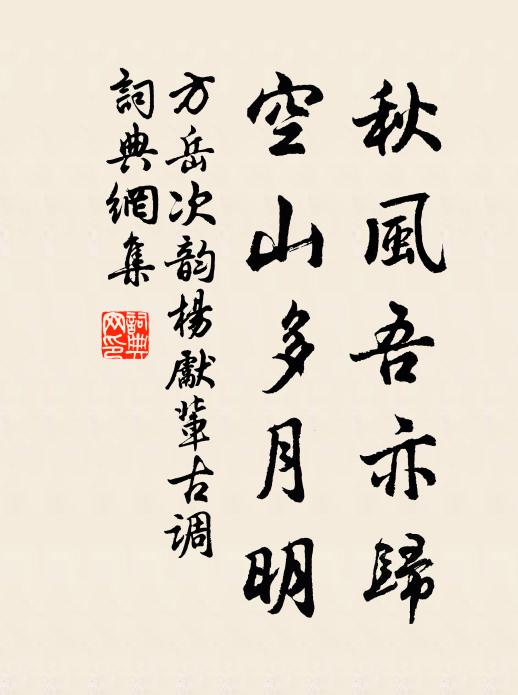 秋風吾亦歸
空山多月明
方岳次韵楊獻軰古调
詞典網集
詞典
网印